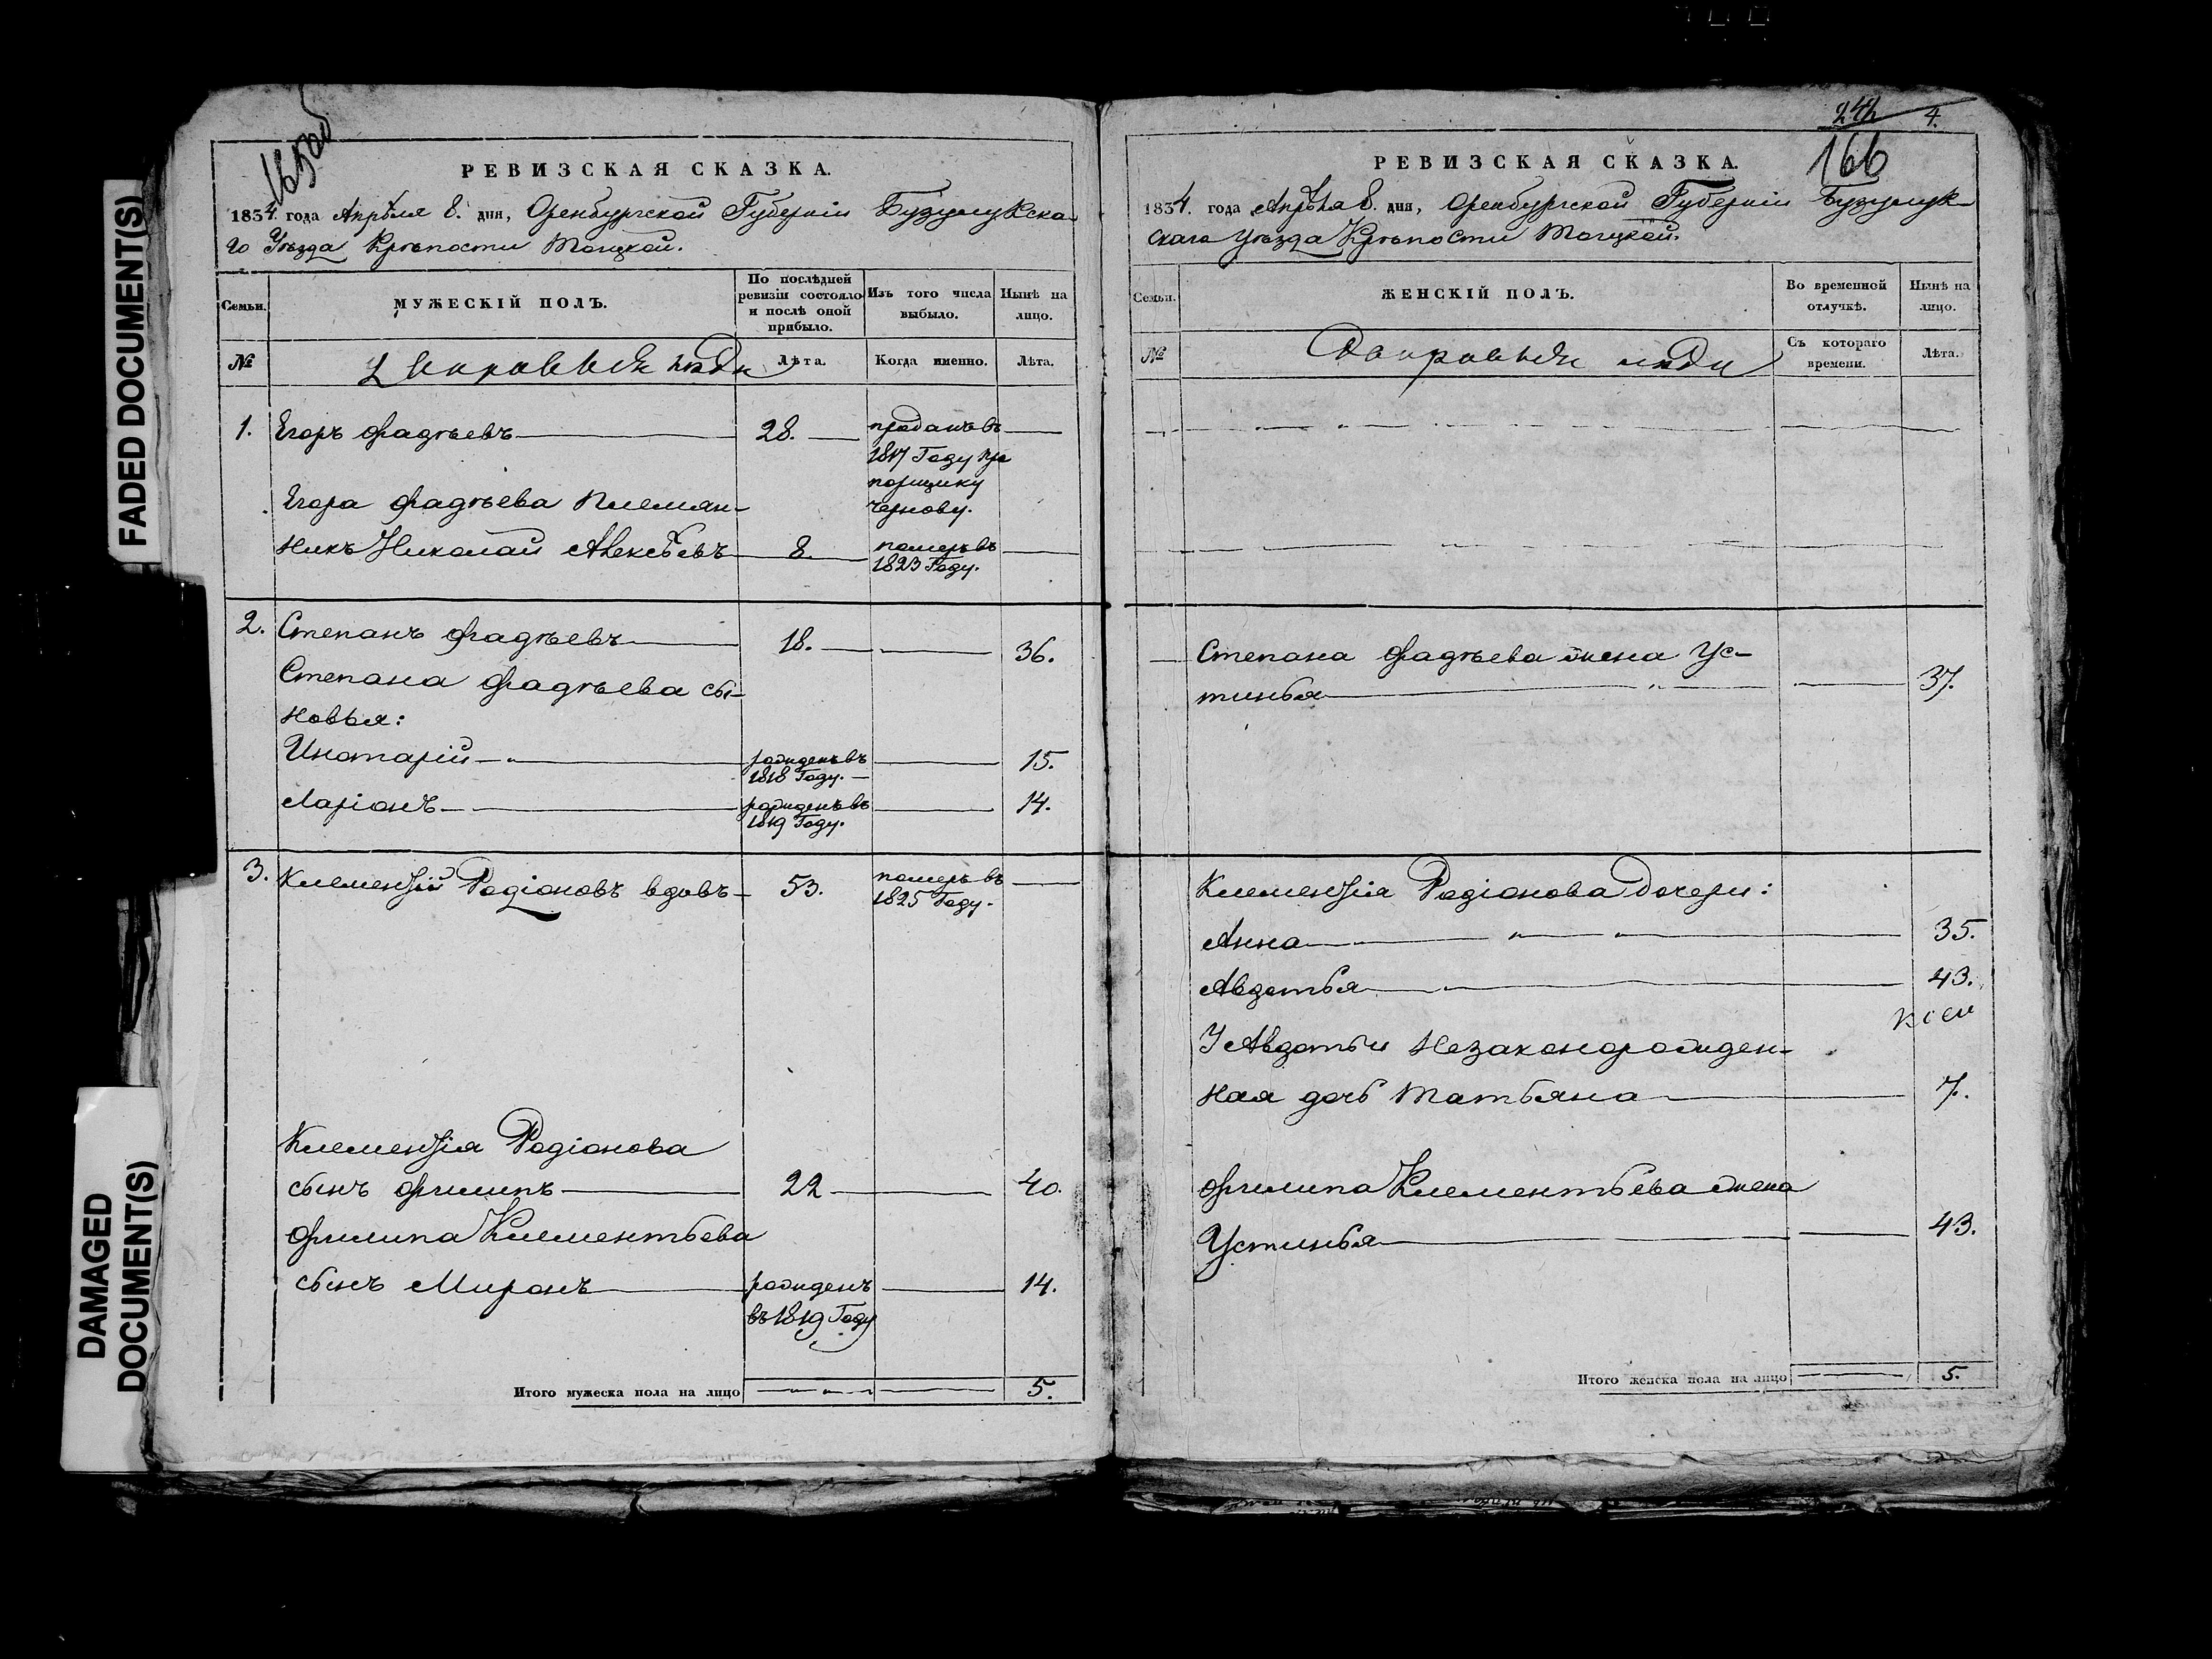 FADED DOCUMENT(S)
DAMAGED
DOCUMENT(S)
165об
РЕВИЗСКАЯ СКАЗКА.
1834. года Апрѣля 8. дня, Оренбургской Губерніи Бузулукска
го Уѣзда Крѣпости Тоцкой.
Семьи.
МУЖЕСКІЙ ПОЛЪ.
По послѣдней
ревизіи состояло
и послѣ оной
прибыло.
Изъ того числа
выбыло.
Нынѣ на
лицо.
№
Дворовыя люди
Лѣта.
Когда именно.
Лѣта.
1. Егоръ Фадѣевъ 28. проданъ въ
1817 Году пра
порщику
Чернову.
Егора Фадѣева племян-
никъ Николай Алексѣевъ 8. померъ въ
1823 Году.
2. Степанъ Фадѣевъ 18. 36.
Степана Фадѣева сы-
новья:
рожденъ въ 15.
1818 Году.
Ларіонъ рожденъ въ 14.
1819 Году.
3. Клементій Родіоновъ вдовъ 53. померъ въ
1825 Году.
Клементія Родіонова
сынъ Филипъ 22 40.
Филипа Клементьева
сынъ Миронъ рожденъ 14.
въ 1819 Году
Итого мужеска пола на лицо 5.
242 4.
166
РЕВИЗСКАЯ СКАЗКА.
1834. года Апрѣля 8. дня, Оренбургской Губерніи Бузулук-
скаго Уѣзда Крѣпости Тоцкой.
Семьи.
ЖЕНСКІЙ ПОЛЪ.
Во временной
отлучкѣ.
Нынѣ на
лицо.
№
Дворовыя люди
Съ котораго
времени.
Лѣта.
Степана Фадѣева жена Ус-
тинья 37.
Клементія Родіонова дочери:
Анна 35.
Авдотья 43.
У Авдотьи незаконорожден-
ная дочь Татьяна 7.
Филипа Клементьева жена
Устинья 43.
Итого женска пола на лицо 5.